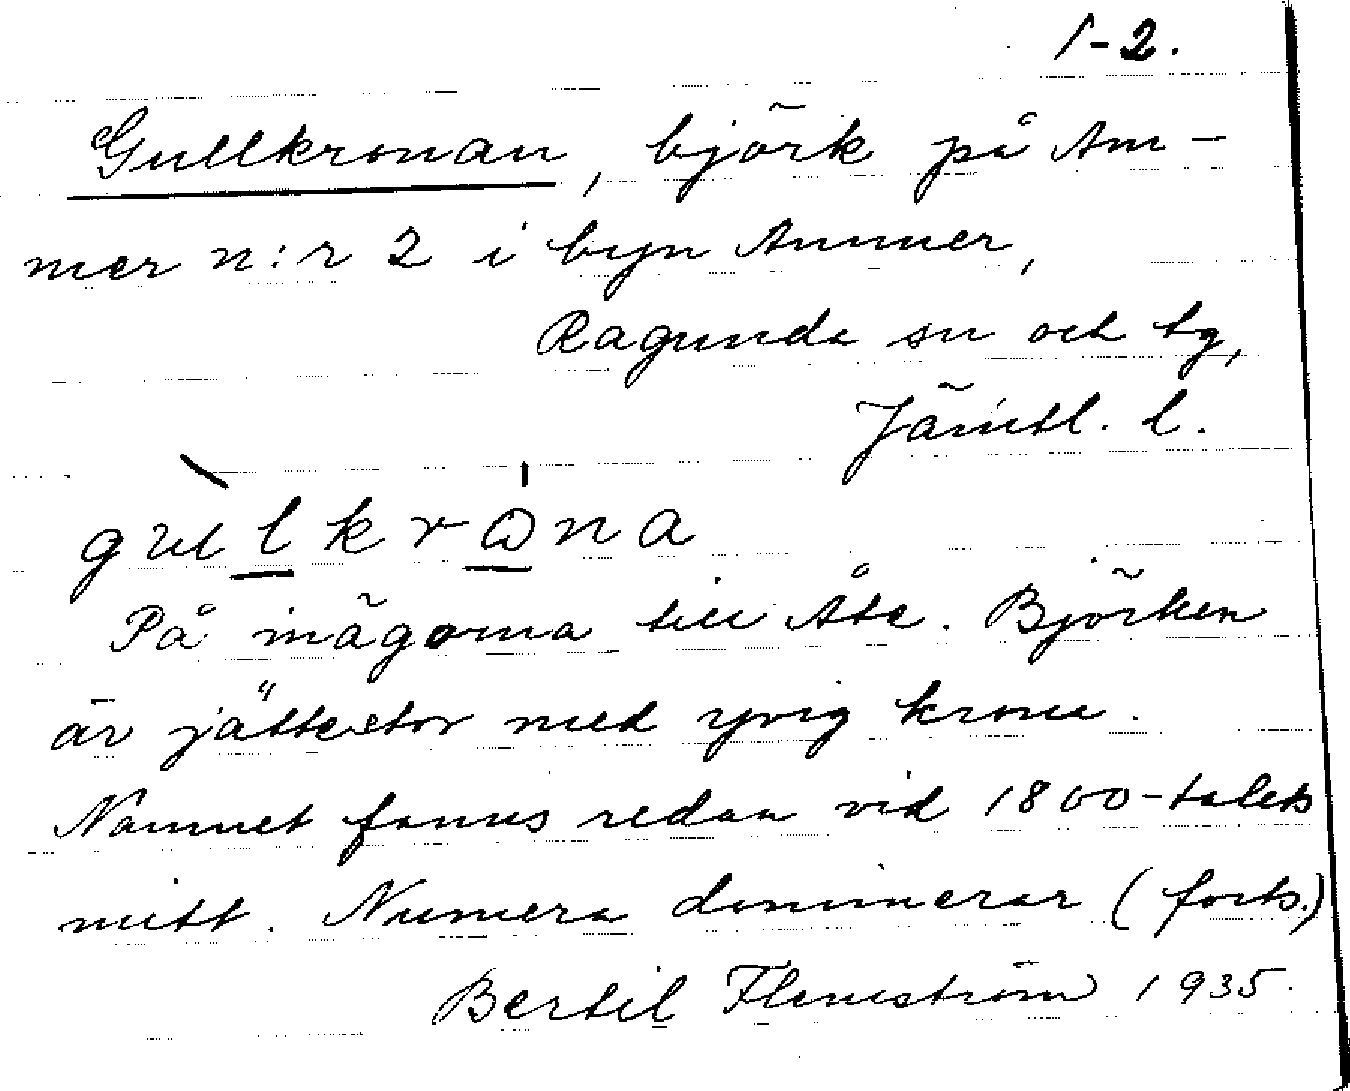 1-2.
Gullkronan, björk på Am-
mer n:r 2 i byn Ammer,
Ragunda sn och tg,
Jämtl. l.
gullkrωna
På mägorna till Åte. Björken
är jättestor med yvig krona.
Namnet fanns redan vid 1800-talets
mitt. Numera dominerar (forts.)
Bertil Flemström 1935.